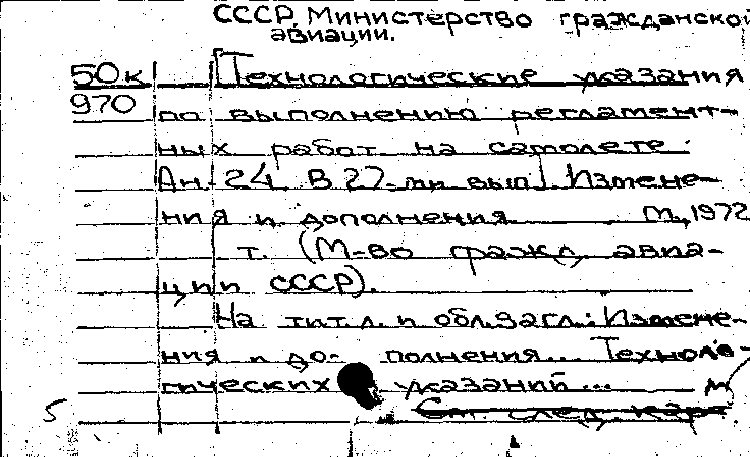 СССР. Министерство гражданской
авиации.
50к [Технологические указания
970 по выполнению регламент-
ных работ на самолете
Ан-24. В 22-ти вып]. Измене-
ния и дополнения М., 1972
т. (М-во гражд. авиа-
ции СССР).
На тит.л. и обл.загл.: Измене-
ния и до- полнения... Техноло-
гических указаний...
5 См. след. карт